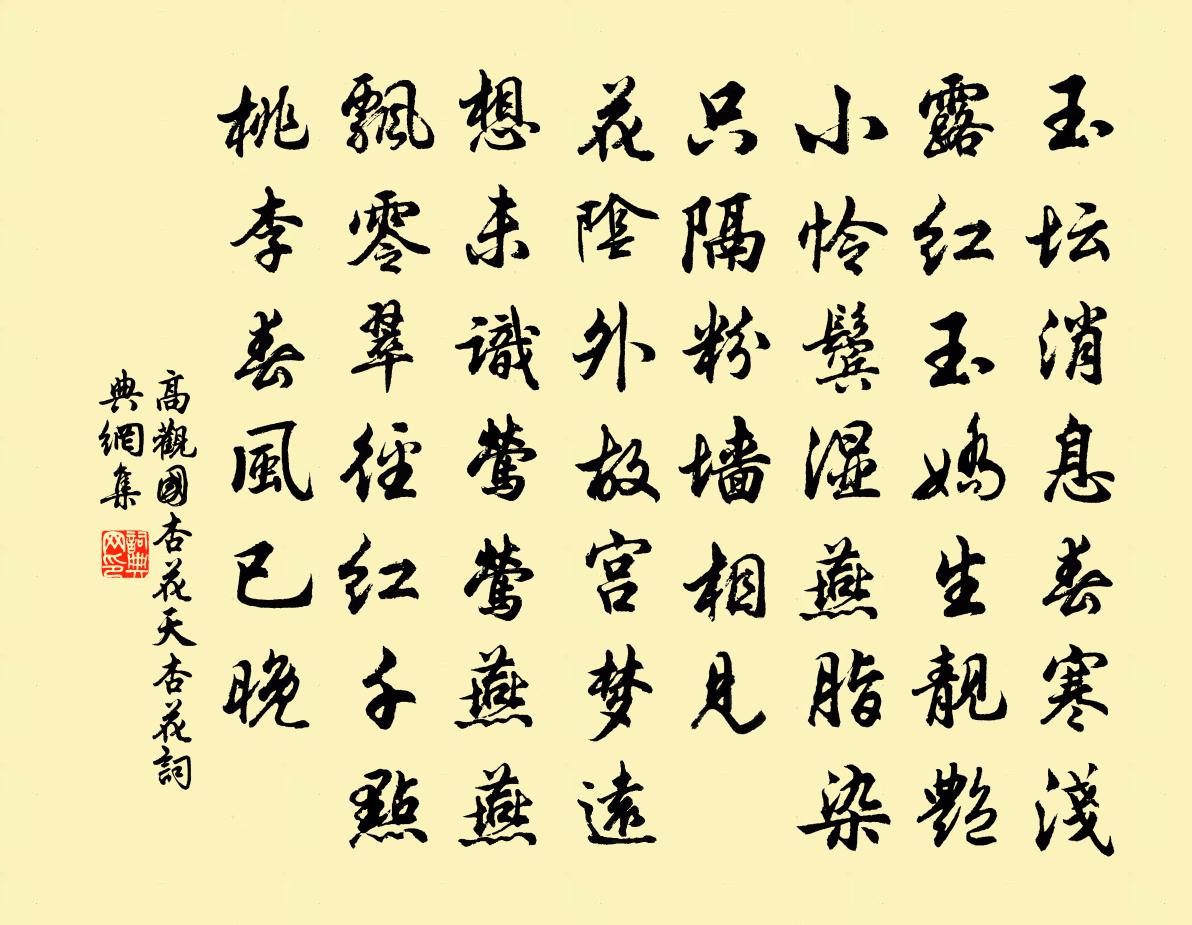 玉坛消息春寒浅
露红玉娇生靓艳
小怜鬓湿燕脂染
只隔粉墙相见
花阴外故宫梦远
想未識莺莺燕燕
飄零翠徑红千點
桃李春風已晚
高觀國杏花天杏花詞
典網集
詞典网印